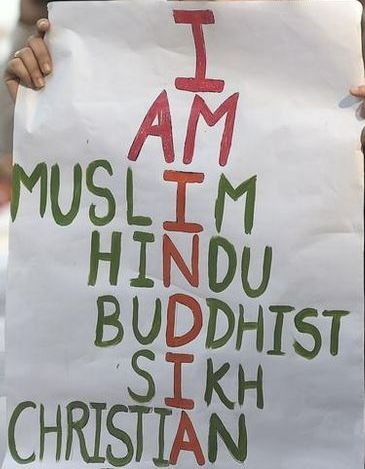 I
AM
MUSLIM
HINDU
BUDDHIST
SIKH
CHRISTIAN